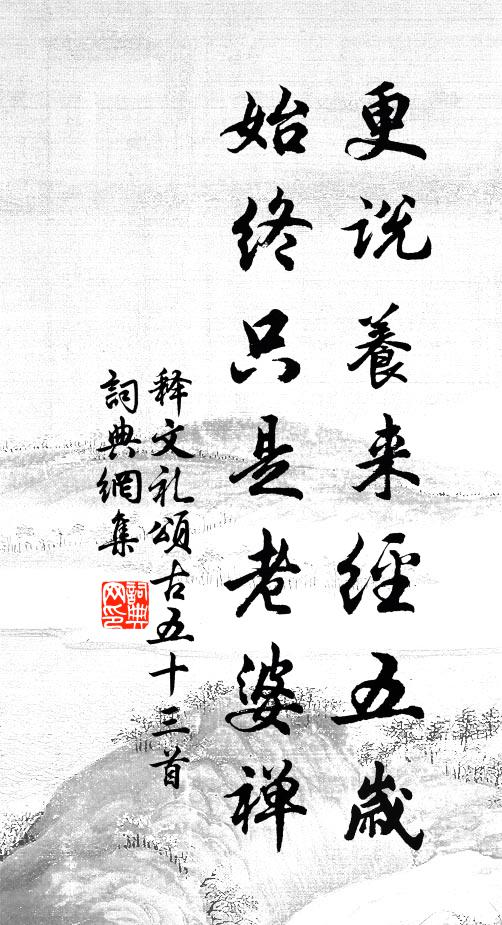 更说養来經五歲
始终只是老婆禅
释文礼頌古五十三首
詞典網集
詞典网印